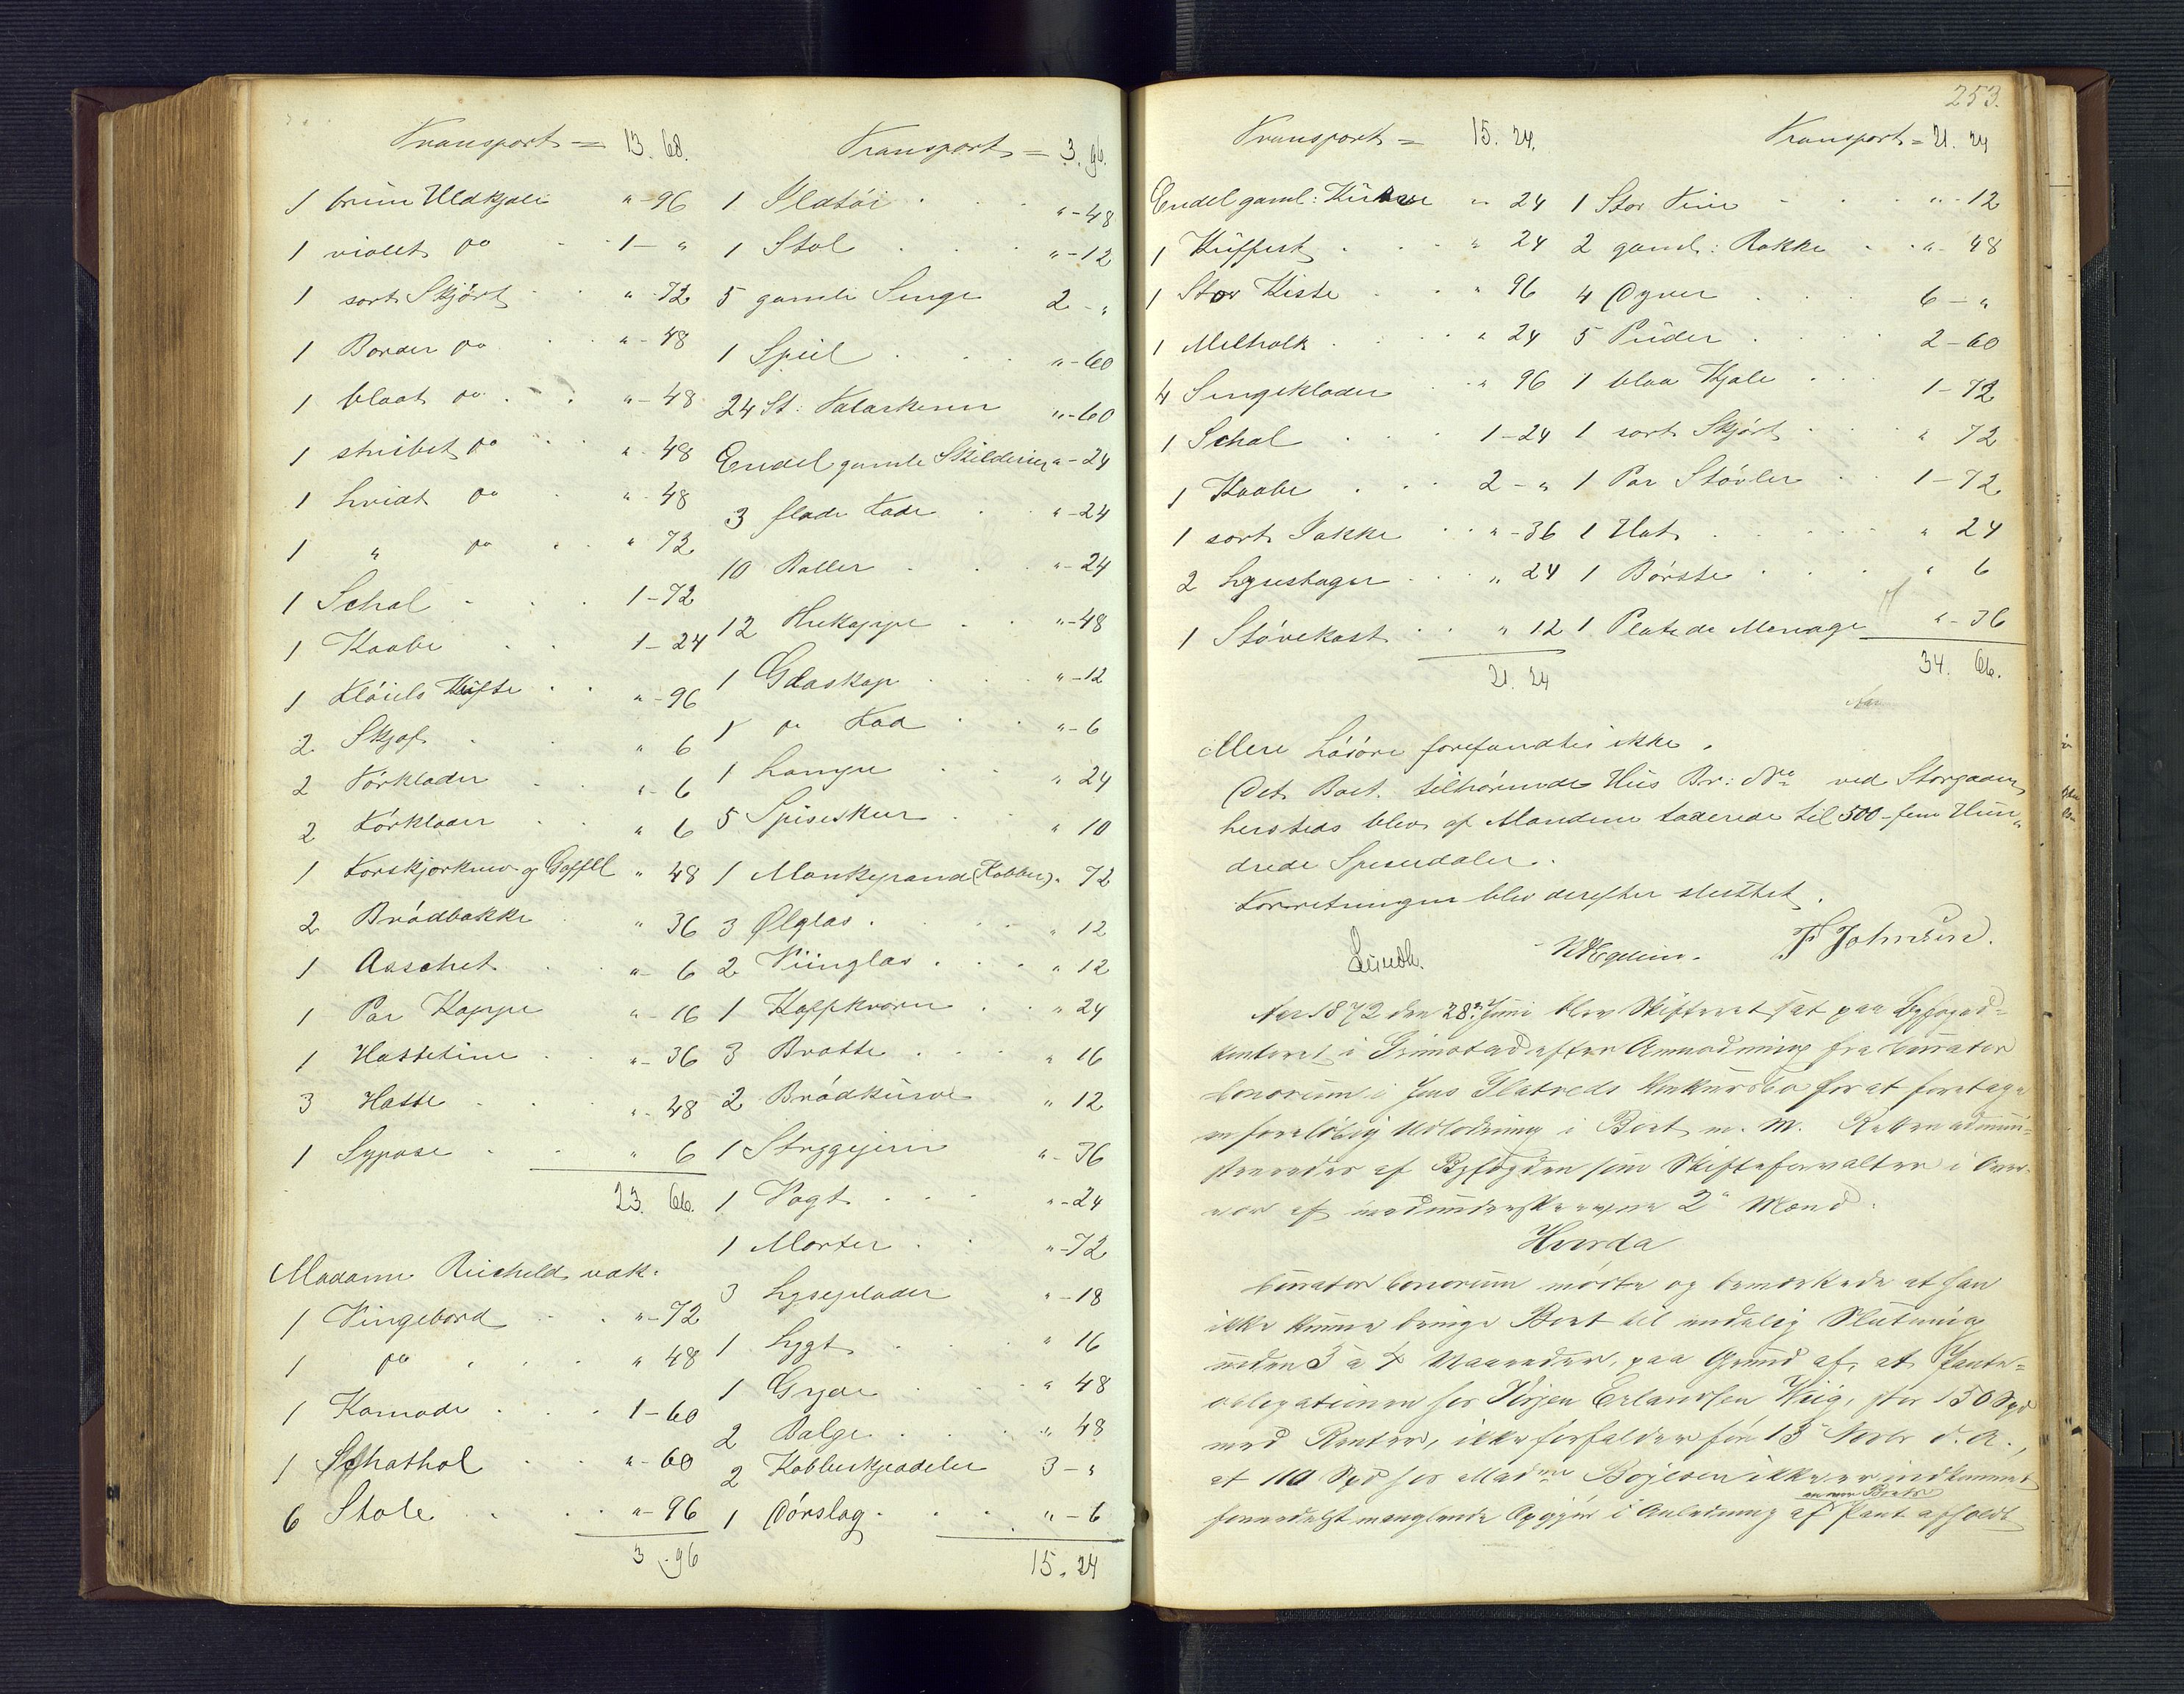 Transport = 13. 68.
1 bruun Uldkjole " - 96
1 violet do 1 - "
1 sort Skjört " - 72
1 Border do " - 48
1 blaat do " - 48
1 stribet do " - 48
1 hvidt do " - 48
1 " do " 72
1 Schal 1 - 72
1 Kaabe 1 - 24
1 Flöiels Kufte " - 96
2 Skjof " 6
2 Törklæder " - 6
2 Forklæder " 6
1 Forskjærkniv og Gaffel " 48
2 Brödbakke " 36
1 Asschet " - 6
1 Par Koppe " - 16
1 Hattetine " - 36
3 Hatte " - 48
1 Sypose " 6
23. 66.
Madame Reichelds vak:
1 Vingebord " - 72
1 do " 48
1 Komode 1 - 60
1 Schathol " - 60
6 Stole " - 96
3 - 96
Transport = 3. 96.
1 Ildtöi " - 48
1 Stol " - 12
5 gamle Senge 2 - "
1 Speil " - 60
24 St: Talærkener " - 60
Endel gamle Skilderier " - 24
3 flade Fade " - 24
10 Boller " - 24
12 Krekoppe " - 48
1 Glaskop " - 12
1 do Fad " - 6
1 Lampe " 24
5 Spiseskeer " 10
1 Monkepande (Kobber) " 72
3 Ølglas " 12
2 Viinglas " 12
1 Kaffekværn " 24
3 Brætte " 16
2 Brödkurve " 12
1 Strygejern " - 36
1 Vægt " - 24
1 Morter " - 72
3 Lyseplader " - 18
1 Lygt " 16
1 Gryde " 48
2 Balge " 48
2 Kobberkjedeler 3 - "
1 Dörslag " - 6
15. 24
253.
Transport = 15. 24.
Endel gaml: " 24
1 Kuffert " 24
1 Stor Kiste " 96
1 Melholk " 24
4 Sengeklæder " 96
1 Schal 1 - 24
1 Kaabe 2 - "
1 sort Jakke " - 36
2 Lysestager " 24
1 Stövekost " 12
21. 24
Transport = 21. 24
1 Stor Tine " - 12
2 gaml: Rokke " 48
4 Dyner 6 - "
5 Puder 2 - 60
1 blaa Kjole 1 - 72
1 sort Skjört " 72
1 Par Stövler 1 - 72
1 Hat " 24
1 Börste " 6
1 Pletede Menage " - 36
34. 66.
Mere Lösöre forefandtes ikke.
Det Boet tilhørende Huus Br: No ved Storgaden
hersteds blev af Mændene taxerede til 500 - fem Hun"
drede Speciedaler.
Forretningen blev derefter sluttet.
Lundh. F Johnsen.
Aar 1872 den 28de Juni blev Skifteret sat paa Byfoged=
kontoret i Grimstad efter Anmodning fra curator
bonorum i Jens Konkursbo for at foretage
en foreløbig Udlodning i Boet m. M. Retten admini=
streredes af Byfogden som Skifteforvalter i Over-
vær af undertskrevne 2de Mænd.
Hvorda
Curator bonorum mødte og bemærkede at han
ikke kunne bringe Boet til endelig Slutning
inden 3 à 4 Maaneder, paa Grund af, at Pante=
obligationen hos Erlandsen Viig, stor 150 Spd
med Renter, ikke forfalder før 13de Novbr d. A.,
at 110 Spd hos Madme Bojesen ikke er indkommet
formedelst manglende Opgjør i Anledning af en over Boets Pant afholdt